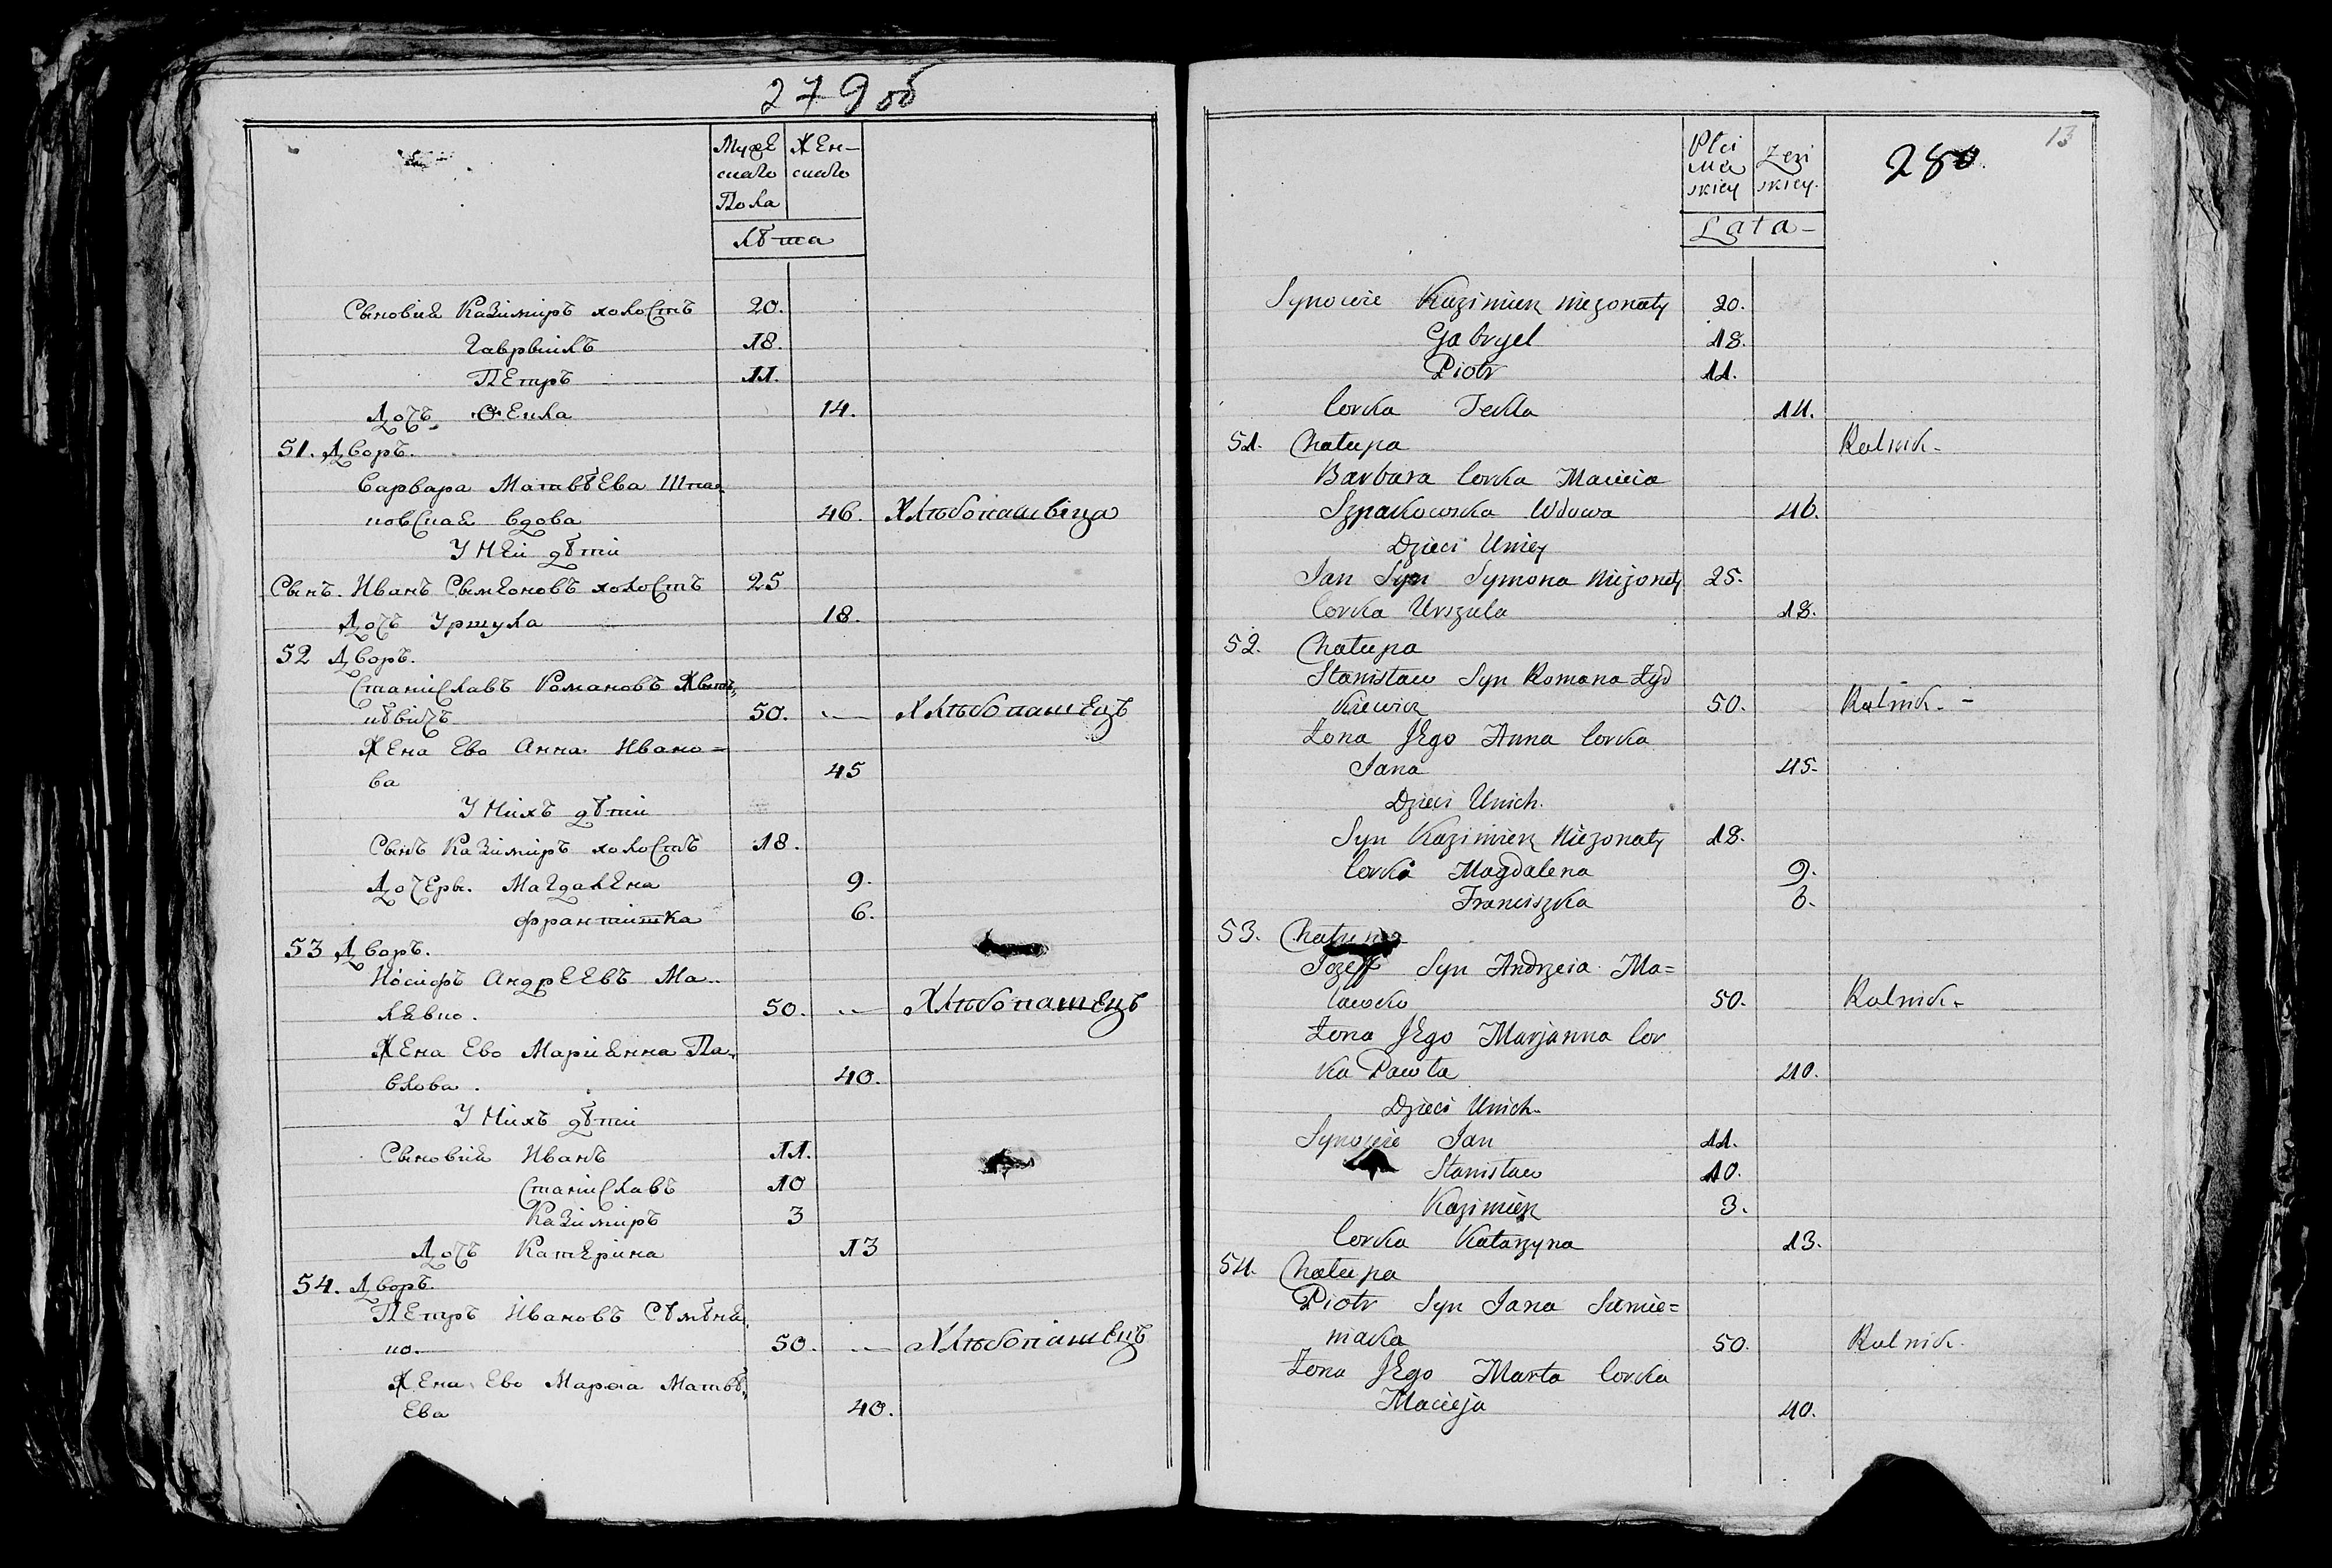 279 об
Муже Жен-
скаго скаго
Пола
лѣта
Сыновия Казимиръ холостъ 20.
Гаврыилъ 18.
Петръ 11.
Дочъ Ѳекла 14.
51. Дворъ.
Варвара Матвѣева Шпа-
ковская вдова 46. Хлѣбопашвица
У Ней дѣти
Сынъ. Иванъ Сымѣоновъ холостъ 25
Дочъ Уршула 18.
52 Дворъ.
Станиславъ Романовъ
50. — Хлѣбопашецъ
Жена Ево Анна Ивано=
ва 45
У Нихъ дѣти
Сынъ Казимиръ холостъ 18.
Дочеры. Магдалена 9.
Францишка 6.
53 Дворъ.
Иосифъ Андреевъ Ма-
левко. 50. — Хлѣбопашецъ
Жена Ево Марианна Па-
влова. 40.
У Нихъ дѣти
Сыновия Иванъ 11.
Станиславъ 10
Казимиръ 3
Дочъ Катерина 13
54. Дворъ.
Петръ Ивановъ
ко. 50. — Хлѣбопашецъ
Жена Ево Марѳа Матвѣ-
ева 40.
13
280.
Płci Zeń
Mę skiey.
skiey
Lata-
Synowie Kazimierz Nieżonaty 20.
Gabryel 18.
Piotr 11.
Corka Tekla 14.
51. Chałupa Rolnik-
Barbara Corka Macieia
Szpakowska Wdowa 46.
Dzieci Uniey
Jan Syn Symona Nieżonaty 25.
Corka Urszula 18.
52. Chałupa
Stanisław Syn Romana Żyd
kiewicz 50. Rolnik.-
Żona Jego Anna Corka
Jana 45.
Dzieci Unich.
Syn Kazimierz Nieżonaty 18.
Corka Magdalena 9.
Franciszka 6.
53. Chałupa
Jozeff Syn Andrzeia Ma=
lawko 50. Rolnik-
Żona Jego Marjanna Cor
ka Pawła 40.
Dzieci Unich.
Synowie Jan 11.
Stanisław 10.
Kazimierz 3.
Corka Katarzyna 13.
54. Chałupa
Piotr Syn Jana Simie=
niaka 50. Rolnik.
Żona Jego Marta Corka
Macieja 40.